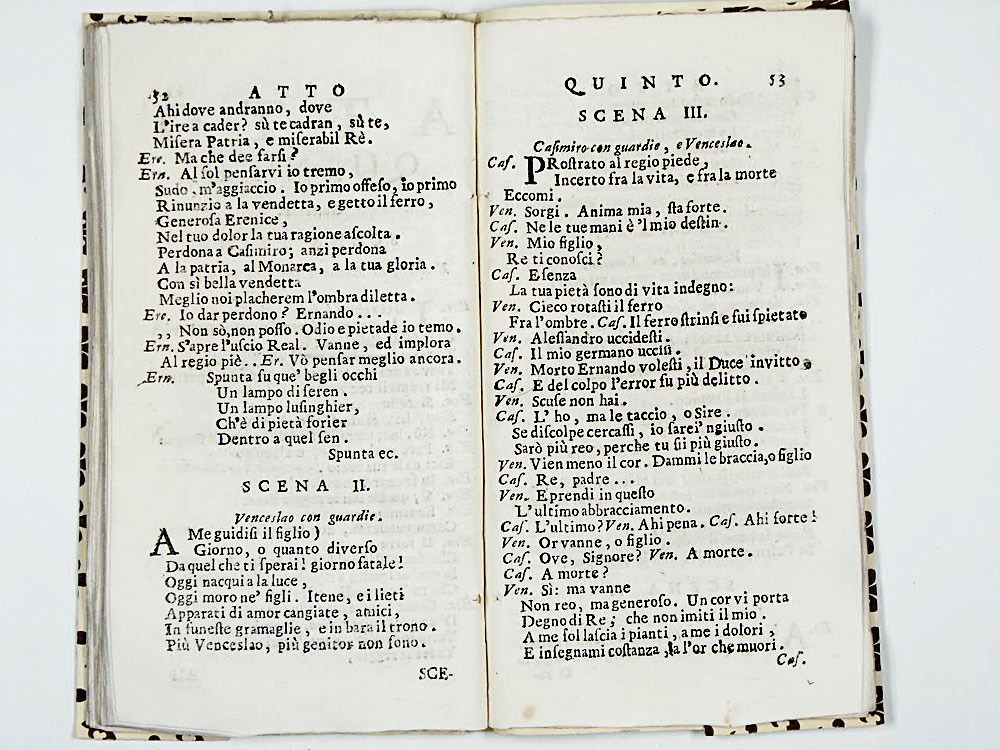 52 ATTO
Ahi dove andranno, dove
L'ire a cader? sù te cadran, sù te,
Miſera Patria, e miſerabil Rè.
Ere. Ma che dee farſi?
Ern. Al ſol penſarvi io tremo,
Sudo, m'agghiaccio. Io primo offeſo, io primo
Rinunzio a la vendetta, e getto il ferro,
Generoſa Erenice,
Nel tuo dolor la tua ragione aſcolta.
Perdona a Caſimiro; anzi perdona
A la patria, al Monarca, a la tua gloria.
Con sì bella vendetta
Meglio noi placherem l'ombra diletta.
Ere. Io dar perdono? Ernando...
,, Non sò, non poſſo. Odio e pietade io temo.
Ern. S'apre l'uſcio Real. Vanne, ed implora
Al regio piè.. Er. Vò penſar meglio ancora.
Ern. Spunta ſu que' begli occhi
Un lampo di ſeren.
Un lampo luſinghier,
Ch'è di pietà forier
Dentro a quel ſen.
Spunta ec.
SCENA II.
Venceslao con guardie.
A Me guidiſi il figlio)
Giorno, o quanto diverſo
Da quel che ti ſperai! giorno fatale!
Oggi nacqui a la luce,
Oggi moro ne' figli. Itene, e i lieti
Apparati di amor cangiate, amici,
In funeſte gramaglie, e in bara il trono.
Più Venceslao, più genitor non ſono.
SCE-
QUINTO. 53
SCENA III.
Caſimiro con guardie, e Venceslao.
Caſ. PRoſtrato al regio piede,
Incerto fra la vita, e fra la morte
Eccomi.
Ven. Sorgi. Anima mia, ſta forte.
Caſ. Ne le tue mani è 'l mio deſtin.
Ven. Mio figlio,
Re ti conoſci?
Caſ. E ſenza
La tua pietà ſono di vita indegno:
Ven. Cieco rotaſti il ferro
Fra l'ombre. Caſ. Il ferro ſtrinſi e fui ſpietato
Ven. Aleſſandro uccideſti.
Caſ. Il mio germano ucciſi.
Ven. Morto Ernando voleſti, il Duce invitto
Caſ. E del colpo l'error fu più delitto.
Ven. Scuſe non hai.
Caſ. L' ho, ma le taccio, o Sire.
Se diſcolpe cercaſſi, io ſarei 'ngiuſto.
Sarò più reo, perche tu ſii più giuſto.
Ven. Vien meno il cor. Dammi le braccia, o figlio
Caſ. Re, padre...
Ven. E prendi in queſto
L'ultimo abbracciamento.
Caſ. L'ultimo? Ven. Ahi pena. Caſ. Ahi ſorte!
Ven. Or vanne, o figlio.
Caſ. Ove, Signore? Ven. A morte.
Caſ. A morte?
Ven. Sì: ma vanne
Non reo, ma generoſo. Un cor vi porta
Degno di Re; che non imiti il mio.
A me ſol laſcia i pianti, a me i dolori,
E inſegnami coſtanza, a l'or che muori.
Caſ.